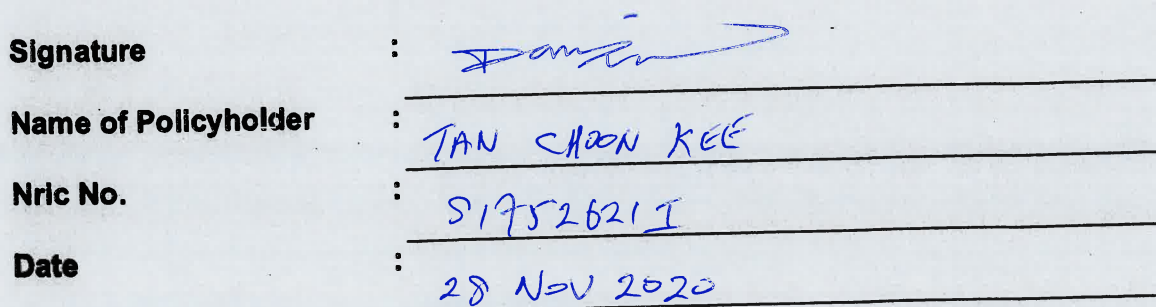 Signature :
Name of Policyholder : TAN CHOON KEE
Nric No. : S1752621I
Date : 28 NOV 2020